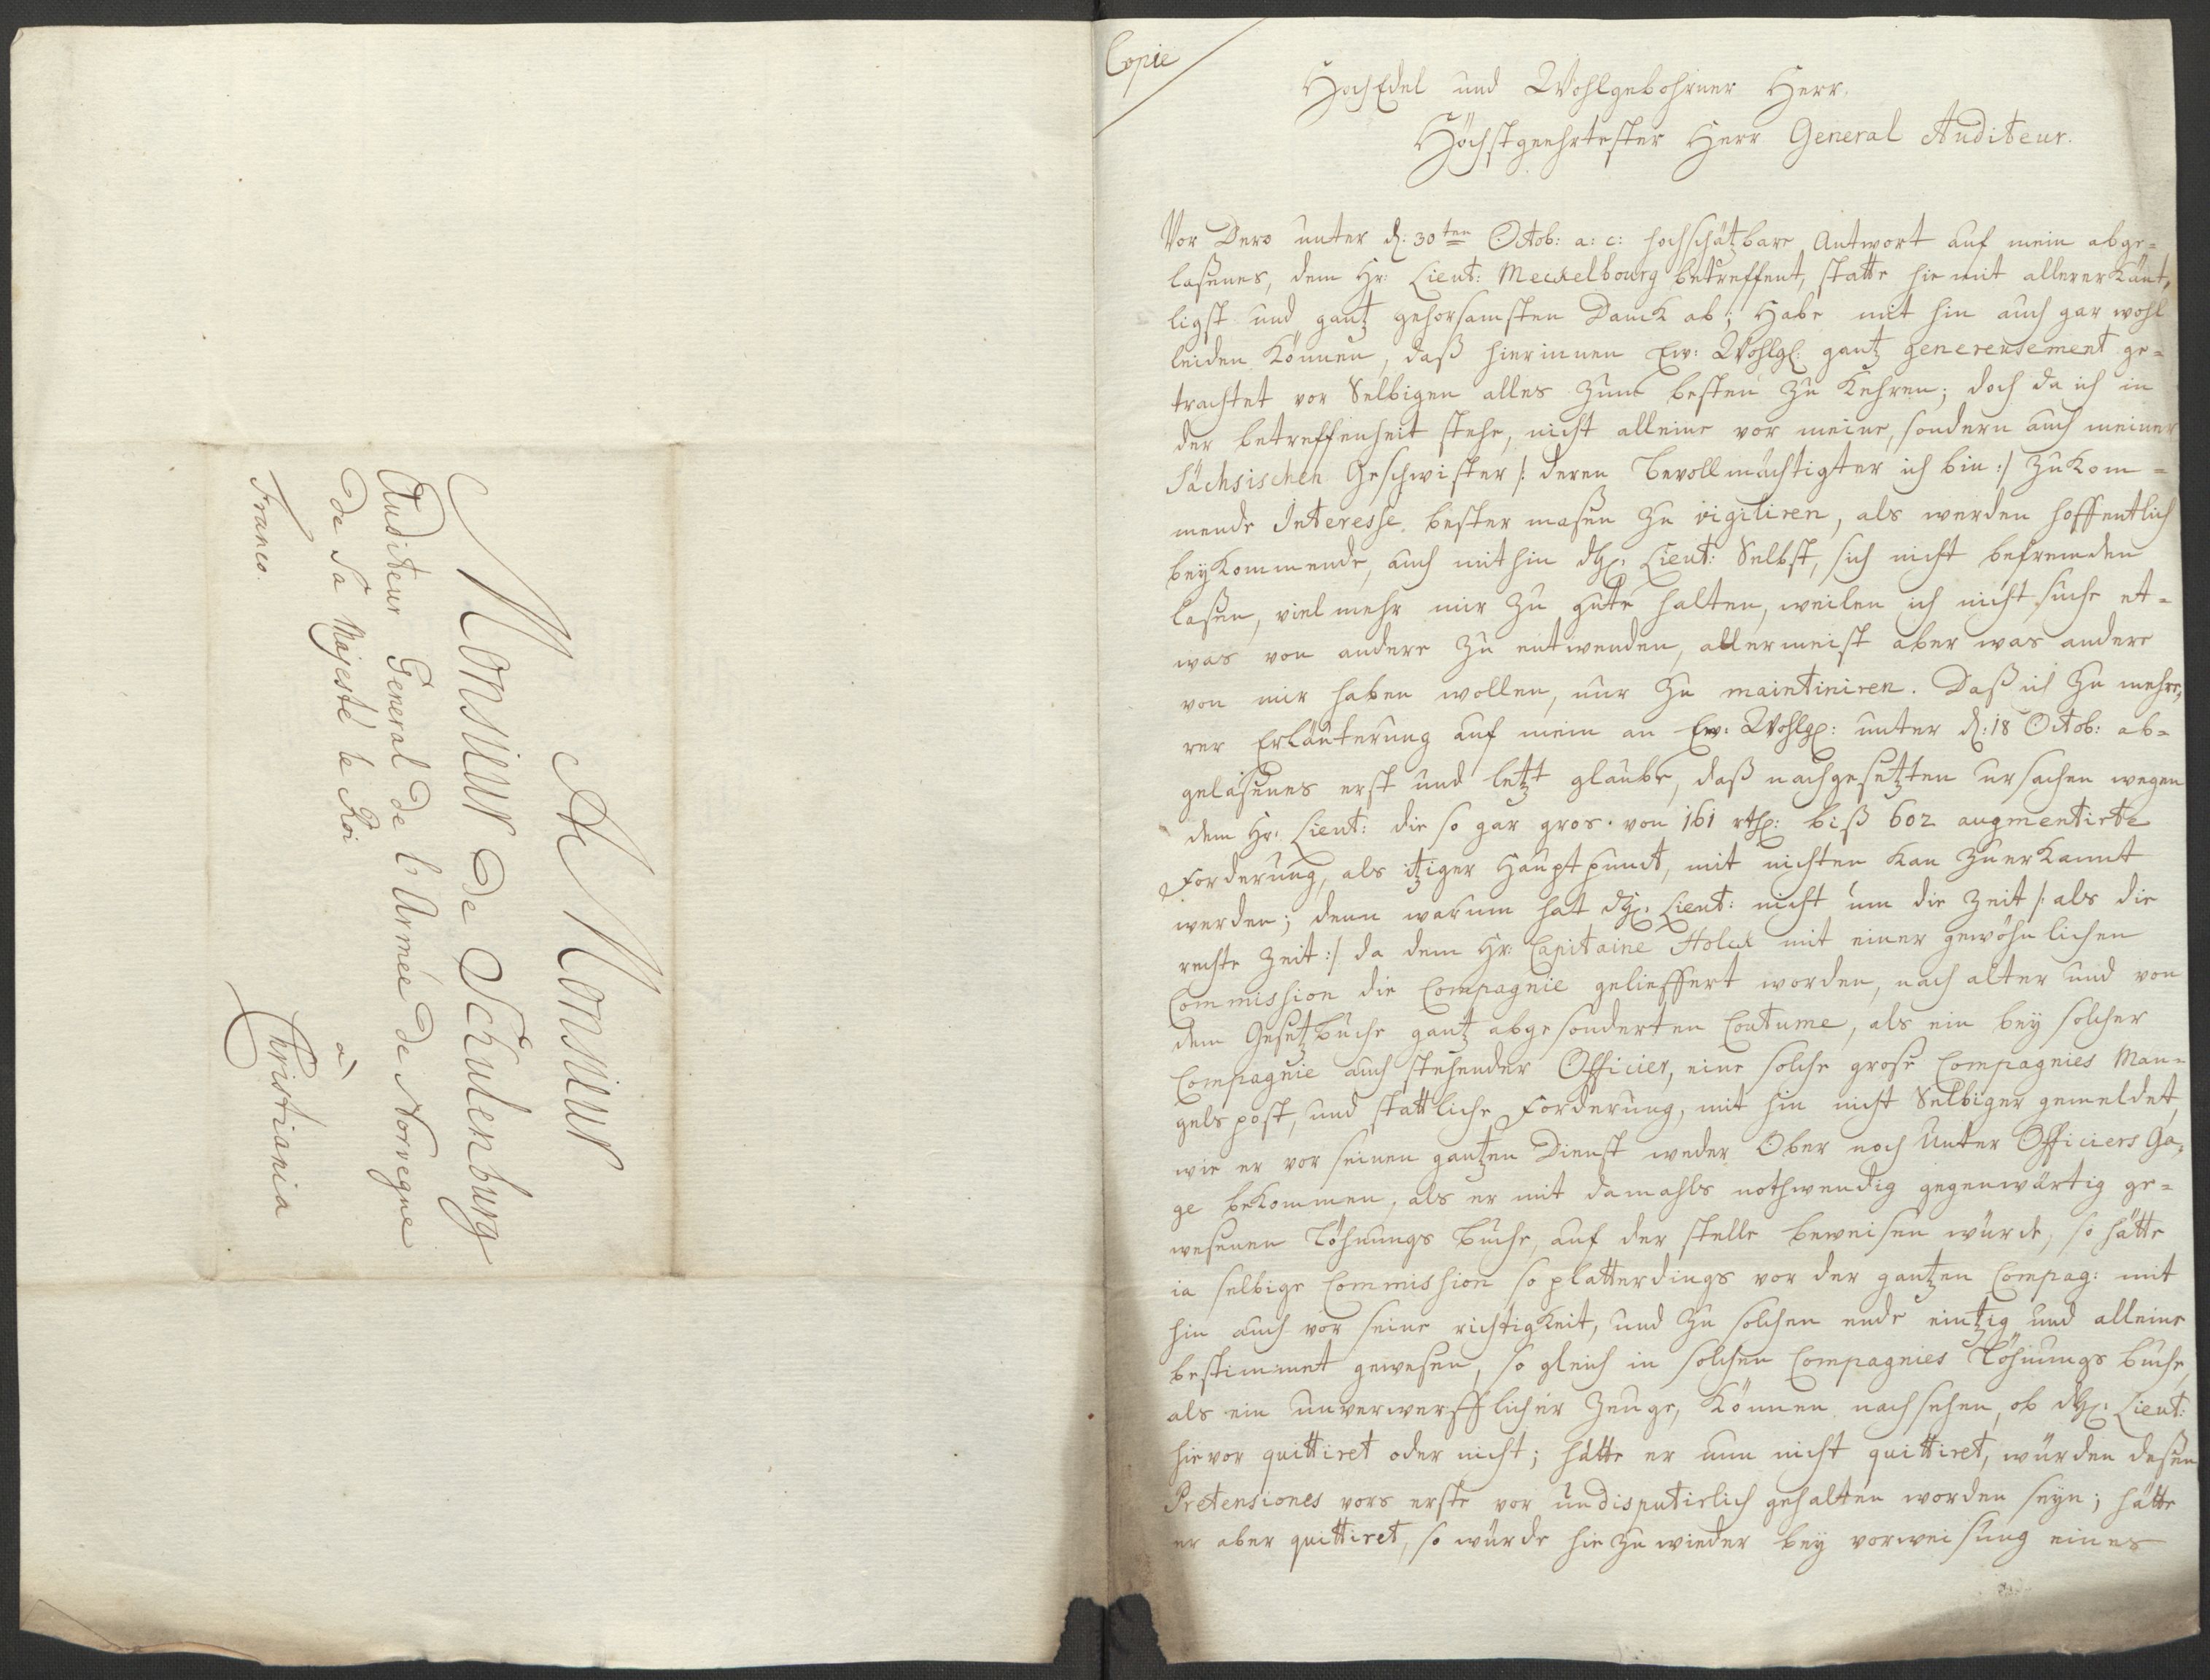 A Monsieur
Monsieur de Schulenburg
Auditeur General de l'Armée de Norvegue
de Sa Majesté le Roi
à
Christiania
Franco.
Copie
HochEdel und Wohlgebohrner Herr.
Höchstgeehrtester Herr General Auditeur.
Vor Dero unter d. 30ten Octob: a: c: hochschätzbare Antwort auf mein abge=
laßenes, dem Hr: Lieut: Meckelbourg betreffent, statte hie mit allererkänt,
ligst und gantz gehorsamsten Danck ab; Habe mit hin auch gar wohl
leiden können, daß hierinnen Ew: Wohlg: gantz genereusement ge=
trachtet vor Selbigen alles zum besten zu kehren; doch da ich in
der betreffenheit stehe, nicht alleine vor meine, sondern auch meiner
Sächsischen Geschwister /: deren Bevollmächtigter ich bin :/ zukom=
mende Interesse bester maßen zu vigiliren, als werden hoffentlich
beykommende, auch mithin Lieut: Selbst, sich nicht befremden
laßen, viel mehr mir zu gute halten, weilen ich nicht suche et=
was von andere zu entwenden, allermeist aber was andere
von mir haben wollen, nur zu maintiniren. Daß ich zu mehre,
rer Erläuterung auf mein an Ew: Wohlg: unter d: 18 Octob: ab=
gelaßenes erst und letzt glaube, daß nachgesetzten ursachen wegen
dem Hr: Lieut: die so gar gros von 161 rth: biß 602 augmentirte
Forderung, als itziger Hauptpunct, mit nichten kan zuerkannt
werden; denn warum hat Lieut: nicht um die Zeit /: als die
rechte Zeit :/ da dem Hr: Capitaine Holck mit einer gewöhnlichen
Commission die Compagnie gelieffert worden, nach alter und von
dem Gesetzbuche gantz abgesonderten Coutume, als ein bey solcher
Compagnie auch stehender Officier, eine solche große Compagnies Man=
gels post, und stattliche Forderung, mit hin nicht Selbiger gemeldet,
wie er vor seinen gantzen Dienst weder Ober noch Unter Officiers Ga,
ge bekommen, als er mit damahls nothwendig gegenwärtig ge=
wesenen Löhnungs Buche, auf der stelle beweisen würde, so hätte
ia selbige Commission so platterdings vor der gantzen Compag: mit
hin auch vor seine richtigkeit, und zu solchen ende eintzig und alleine
bestimmet gewesen, so gleich in solchen Compagnies Löhnungs buche,
als ein unverwerfflicher Zeuge, können nachsehen, ob Lieut:
hievor quittiret oder nicht; hätte er nun nicht quittiret, würden deßen
Pretensiones vors erste vor undisputirlich gehalten worden seyn; hätte
er aber quittiret, so würde hie zu wieder bey vorweisung eines